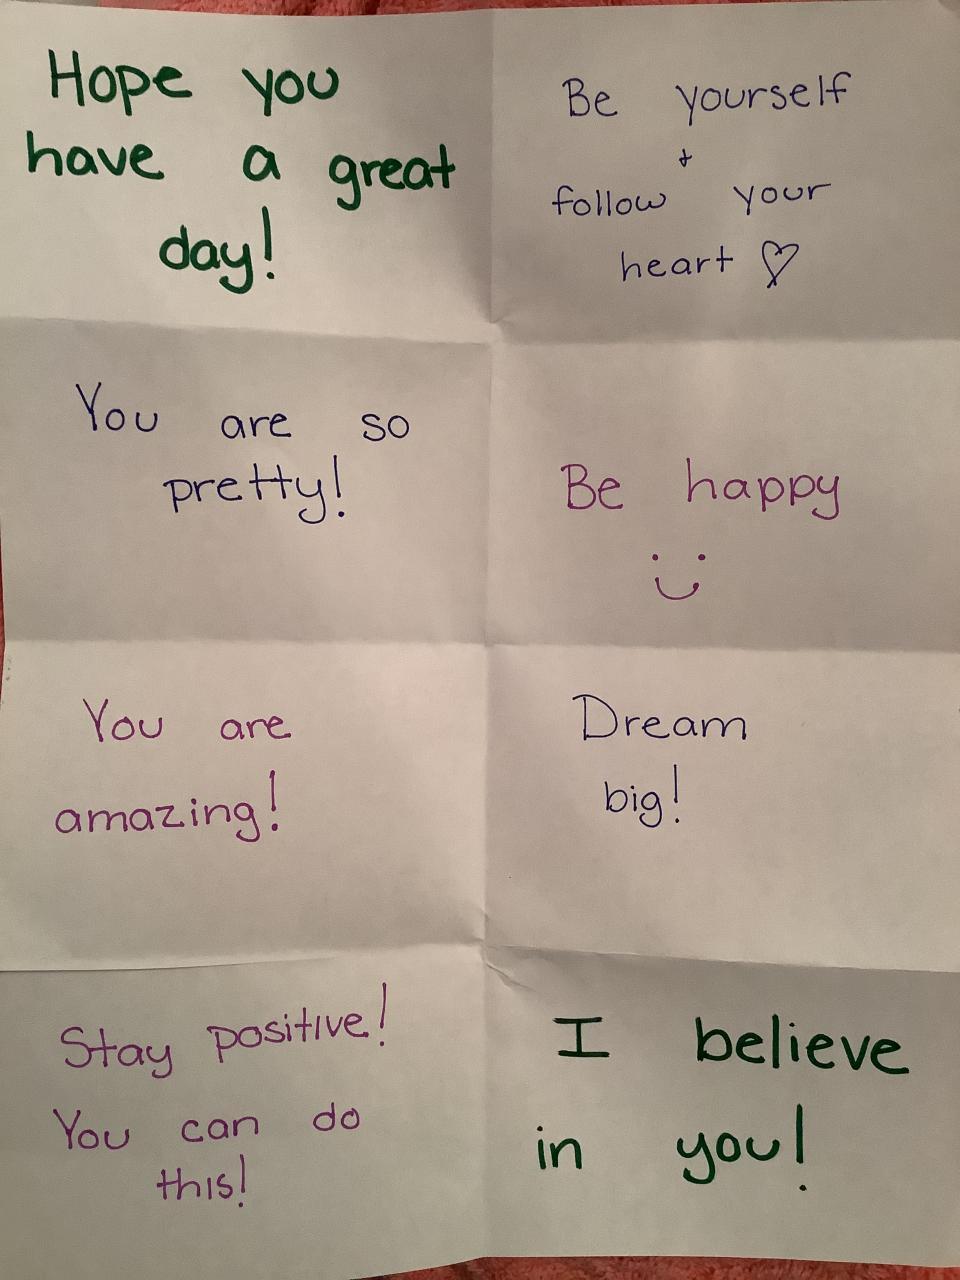 Hope you
have a great
day!
Be yourself
+
follow your
heart ♡
You are so
pretty!
Be happy
You are
amazing!
Dream
big!
Stay positive!
You can do
this!
I believe
in you!